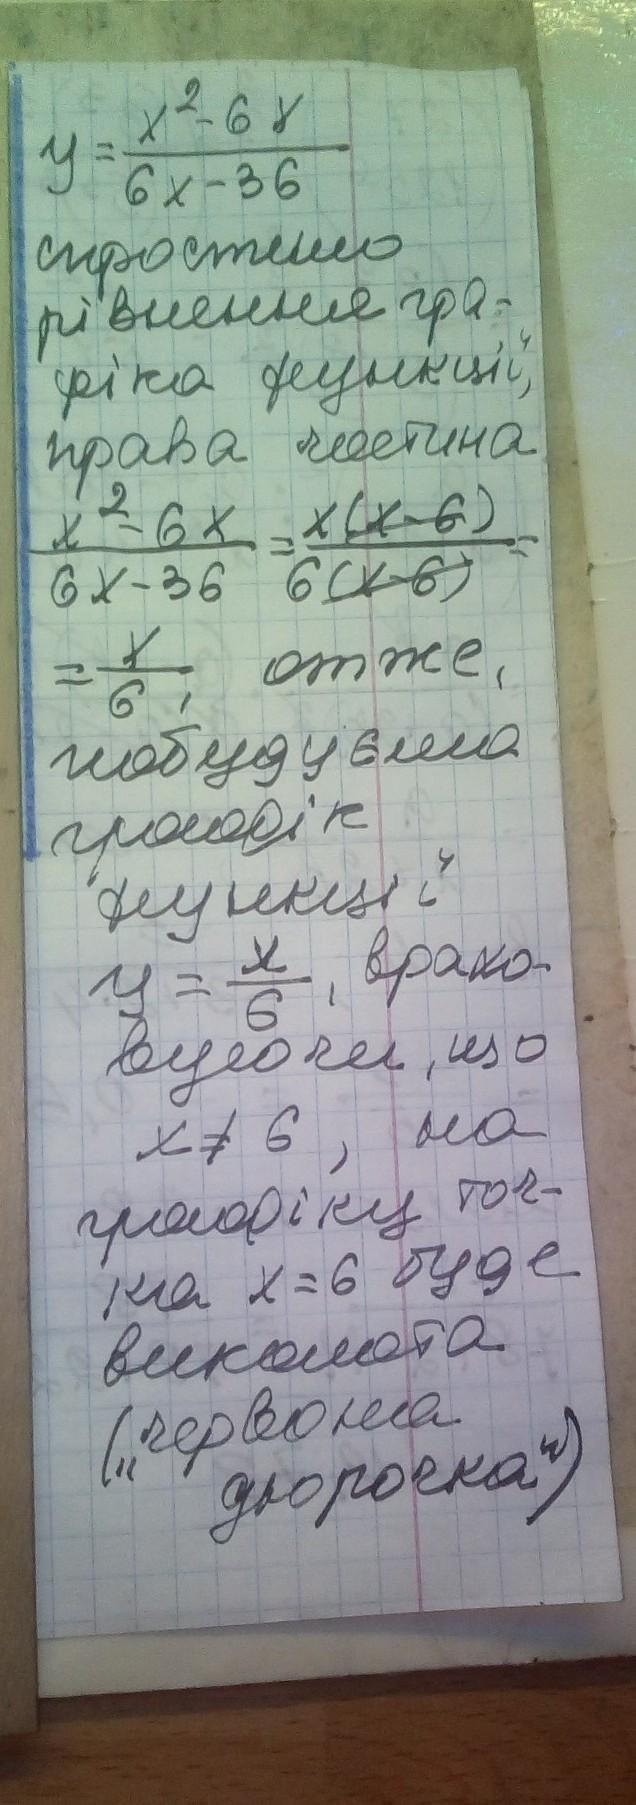 y = \frac{x^2 - 6x}{6x - 36}
спростимо
рівняння гра-
фіка функції,
права частина
\frac{x^2 - 6x}{6x - 36} = \frac{x(x-6)}{6(x-6)} =
= \frac{x}{6}, отже,
побудуємо
графік
функції
y = \frac{x}{6}, врахо-
вуючи, що
x ≠ 6, на
графіку точ-
ка x = 6 буде
виколота
(„червона
дюрочка")